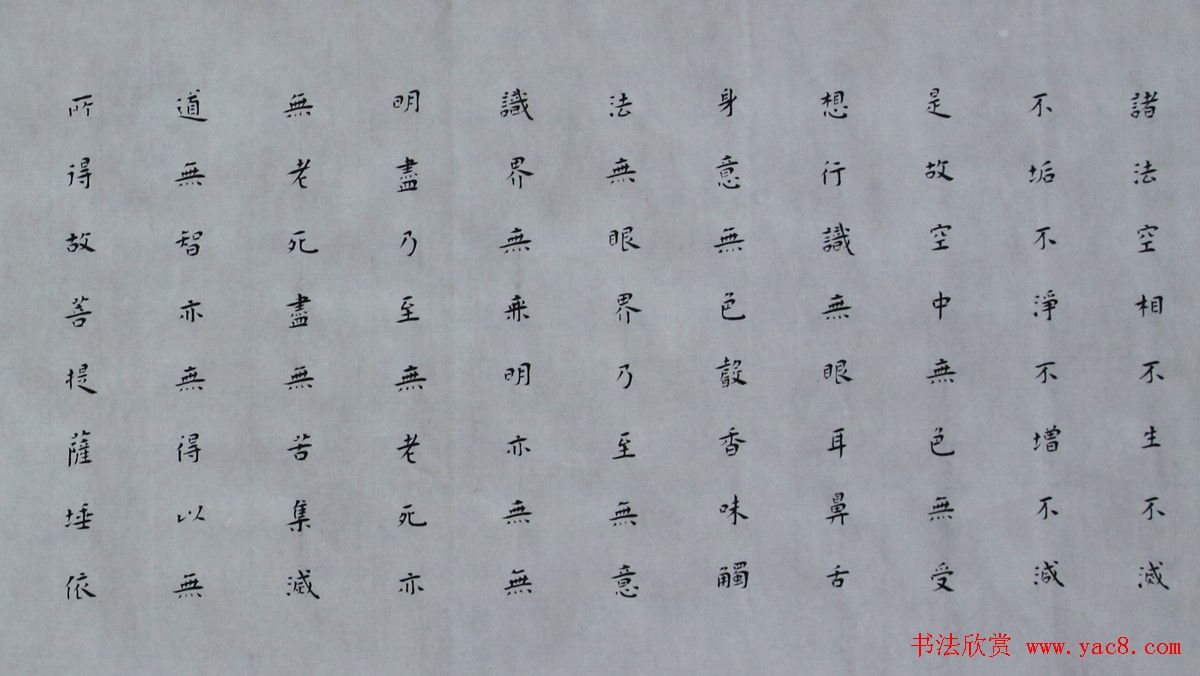 諸法空相不生不滅
不垢不淨不增不減
是故空中無色無受
想行識無眼耳鼻舌
身意無色聲香味觸
法無眼界乃至無意
識界無無明亦無無
明盡乃至無老死亦
無老死盡無苦集滅
道無智亦無得以無
所得故菩提薩埵依
书法欣赏 www.yac8.com